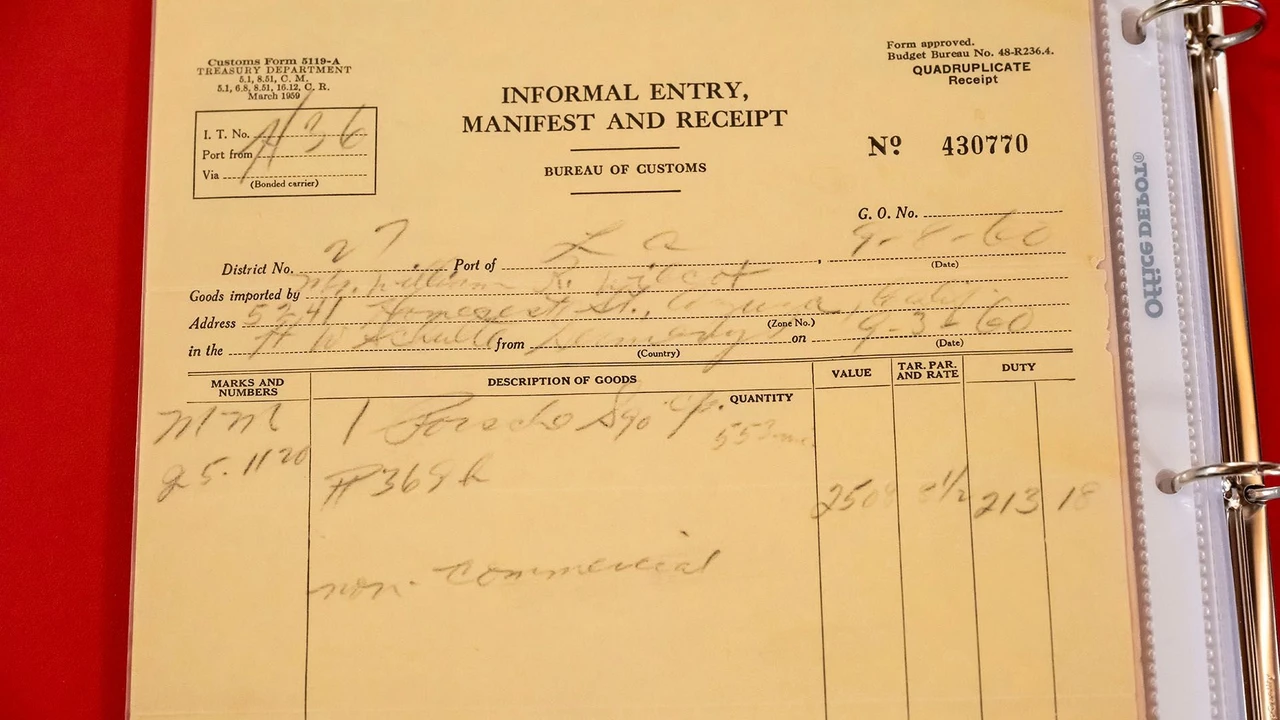 Customs Form 5119-A
TREASURY DEPARTMENT
5.1, 8.51, C. M.
5.1, 6.8, 8.51, 16.12, C. R.
March 1959
Form approved.
Budget Bureau No. 48-R236.4.
QUADRUPLICATE
Receipt
INFORMAL ENTRY,
MANIFEST AND RECEIPT
BUREAU OF CUSTOMS
Nº 430770
I. T. No.
Port from
Via
(Bonded carrier)
G. O. No.
District No. 27 Port of L a 9-8-60
(Date)
Goods imported by William R. Wilcox
Address 5241 St.,
(Zone No.)
in the from Germany on 9-3-60
(Country) (Date)
MARKS AND NUMBERS DESCRIPTION OF GOODS VALUE TAR. PAR. AND RATE DUTY
QUANTITY
MM 1
25.1120
2508 8½ 213 18
non-commercial
Office DEPOT®